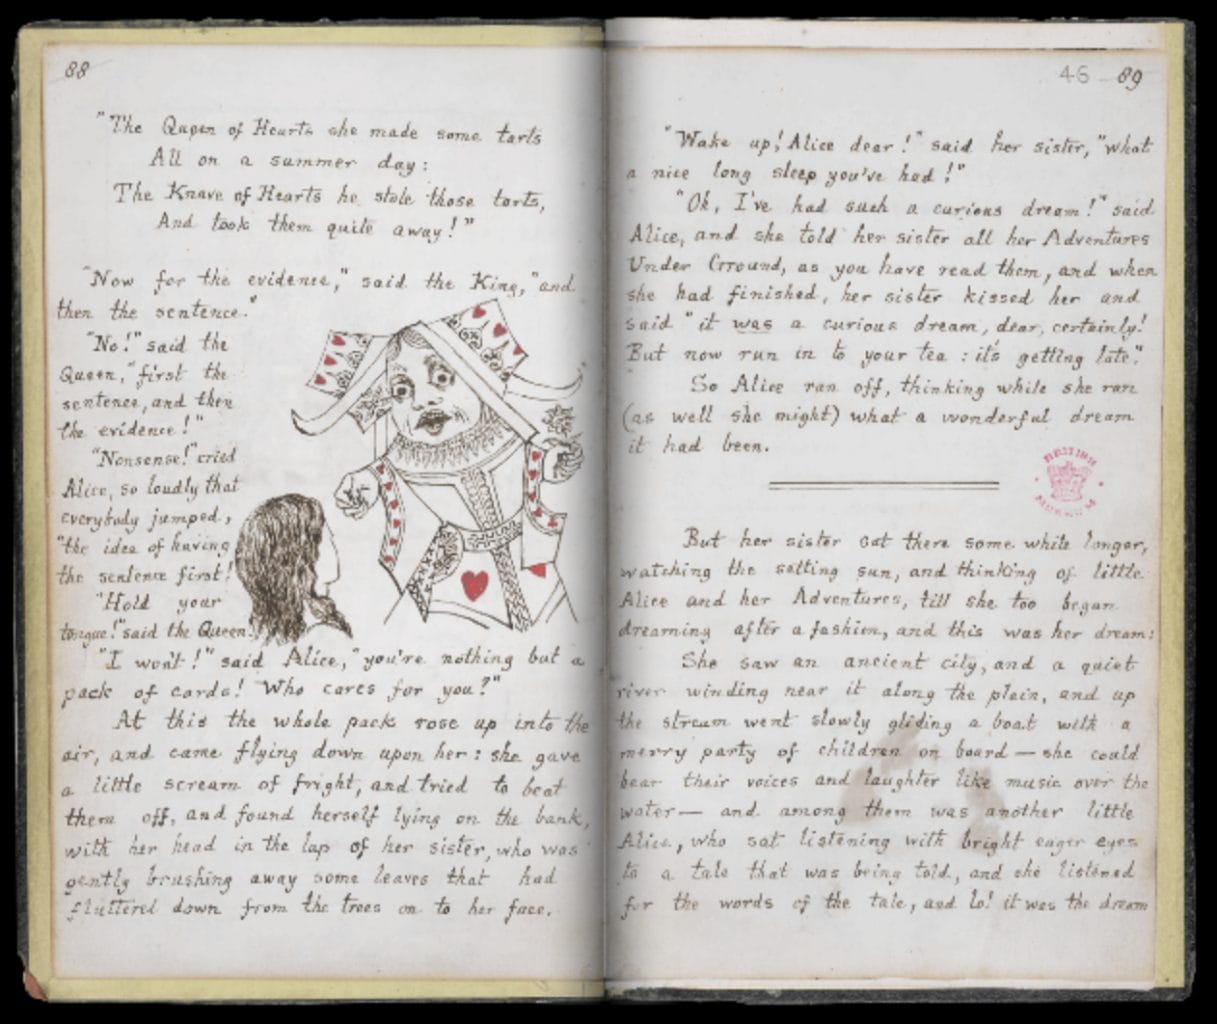 88
"The Queen of Hearts she made some tarts
All on a summer day:
The Knave of Hearts he stole those tarts,
And took them quite away!"
"Now for the evidence," said the King, "and
then the sentence."
"No!" said the
Queen, "first the
sentence, and then
the evidence!"
"Nonsense!" cried
Alice, so loudly that
everybody jumped,
"the idea of having
the sentence first!
"Hold your
tongue!" said the Queen.
"I won't!" said Alice, "you're nothing but a
pack of cards! Who cares for you?"
At this the whole pack rose up into the
air, and came flying down upon her: she gave
a little scream of fright, and tried to beat
them off, and found herself lying on the bank,
with her head in the lap of her sister, who was
gently brushing away some leaves that had
fluttered down from the trees on to her face.
46 89
"Wake up! Alice dear!" said her sister, "what
a nice long sleep you've had!"
"Oh, I've had such a curious dream!" said
Alice, and she told her sister all her Adventures
Under Ground, as you have read them, and when
she had finished, her sister kissed her and
said "it was a curious dream, dear, certainly!
But now run in to your tea: it's getting late."
So Alice ran off, thinking while she ran
(as well she might) what a wonderful dream
it had been.
BRITISH
MUSEUM
But her sister sat there some while longer,
watching the setting sun, and thinking of little
Alice and her Adventures, till she too began
dreaming after a fashion, and this was her dream:
She saw an ancient city, and a quiet
river winding near it along the plain, and up
the stream went slowly gliding a boat with a
merry party of children on board — she could
hear their voices and laughter like music over the
water — and among them was another little
Alice, who sat listening with bright eager eyes
to a tale that was being told, and she listened
for the words of the tale, and lo! it was the dream